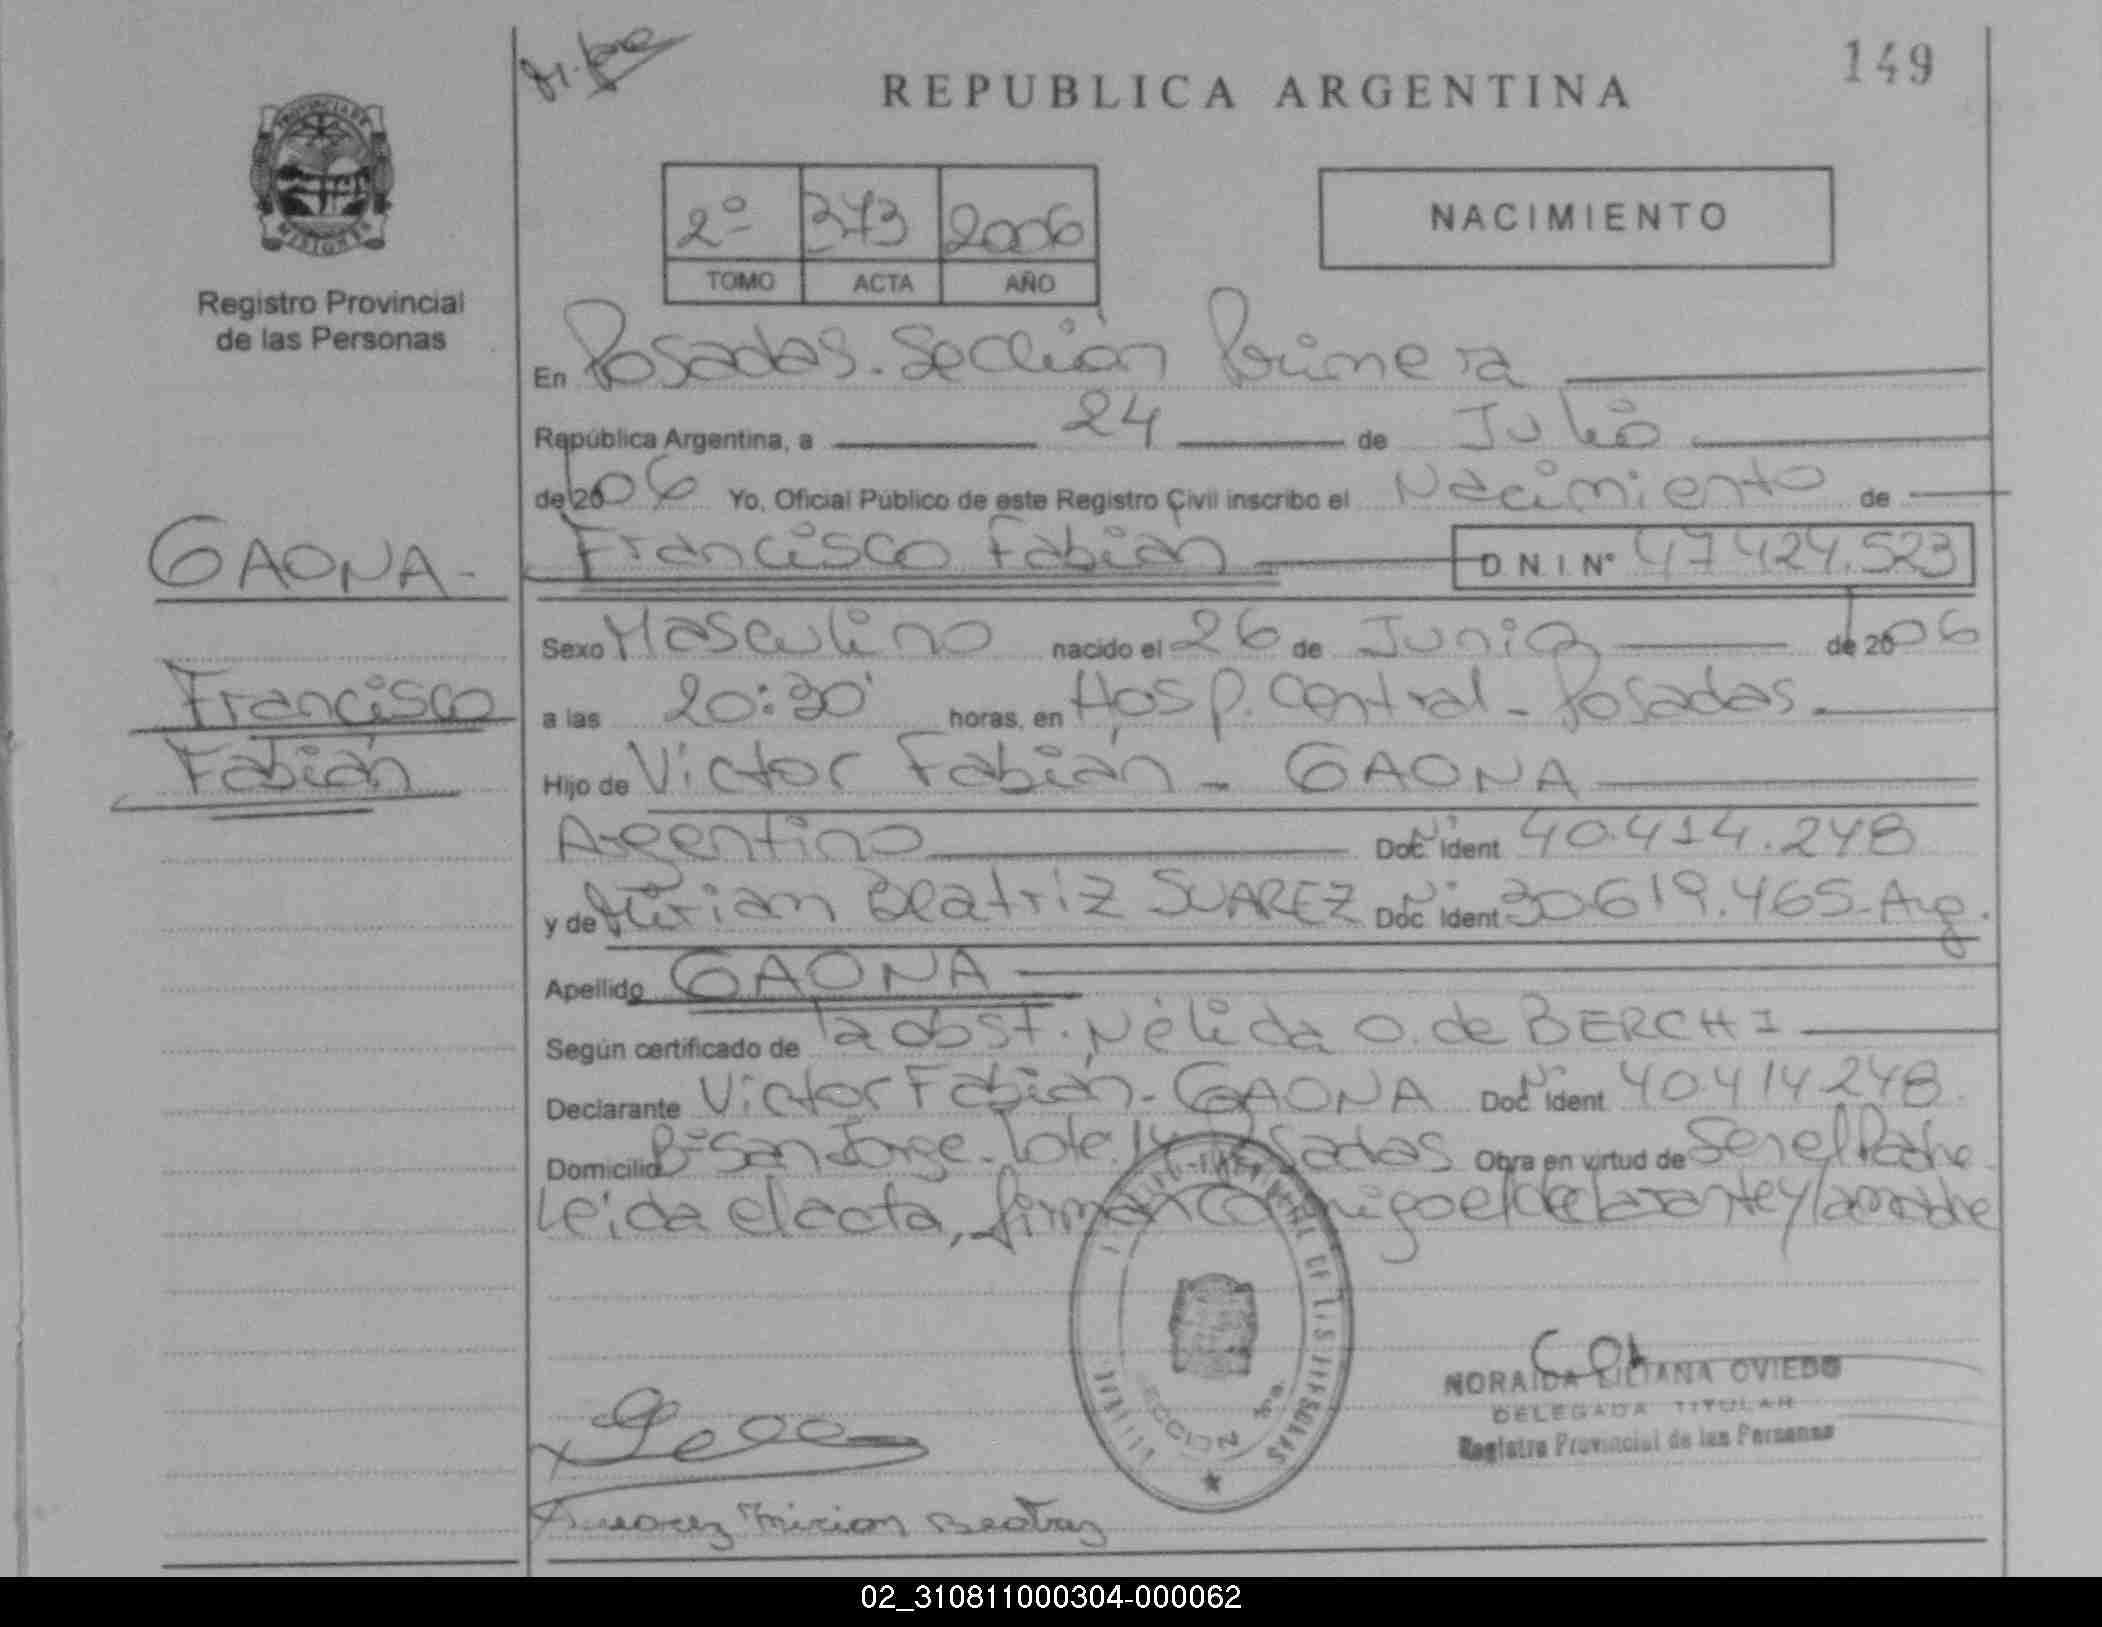 149
REPUBLICA ARGENTINA
2º 373 2006
TOMO ACTA AÑO
NACIMIENTO
PROVINCIA DE MISIONES
Registro Provincial
de las Personas
GAONA-
Francisco
Fabián
En Posadas. Sección Primera
República Argentina, a 24 de Julio
de 2006 Yo, Oficial Público de este Registro Civil inscribo el Nacimiento de
Francisco Fabián D.N.I. Nº 47424.523
Sexo Masculino nacido el 26 de Junio de 2006
a las 20:30' horas, en Hosp. Central - Posadas.
Hijo de Victor Fabián - GAONA
Argentino Doc. Ident Nº 40.414.248
y de Miriam Beatriz SUAREZ Doc. Ident Nº 30619.465-Arg.
Apellido GAONA
Según certificado de la obst. Nélida O. de BERCHI
Declarante Victor Fabián - GAONA Doc. Ident Nº 40414248
Domicilio Bº San Jorge - lote 14 Posadas Obra en virtud de Ser el Padre
Leida el acta, firman conmigo el declarante y la madre
SECCION 1ra.
NORAIDA LILIANA OVIEDO
DELEGADA TITULAR
Registro Provincial de las Personas
Suarez Mirian Beatriz
02_310811000304-000062